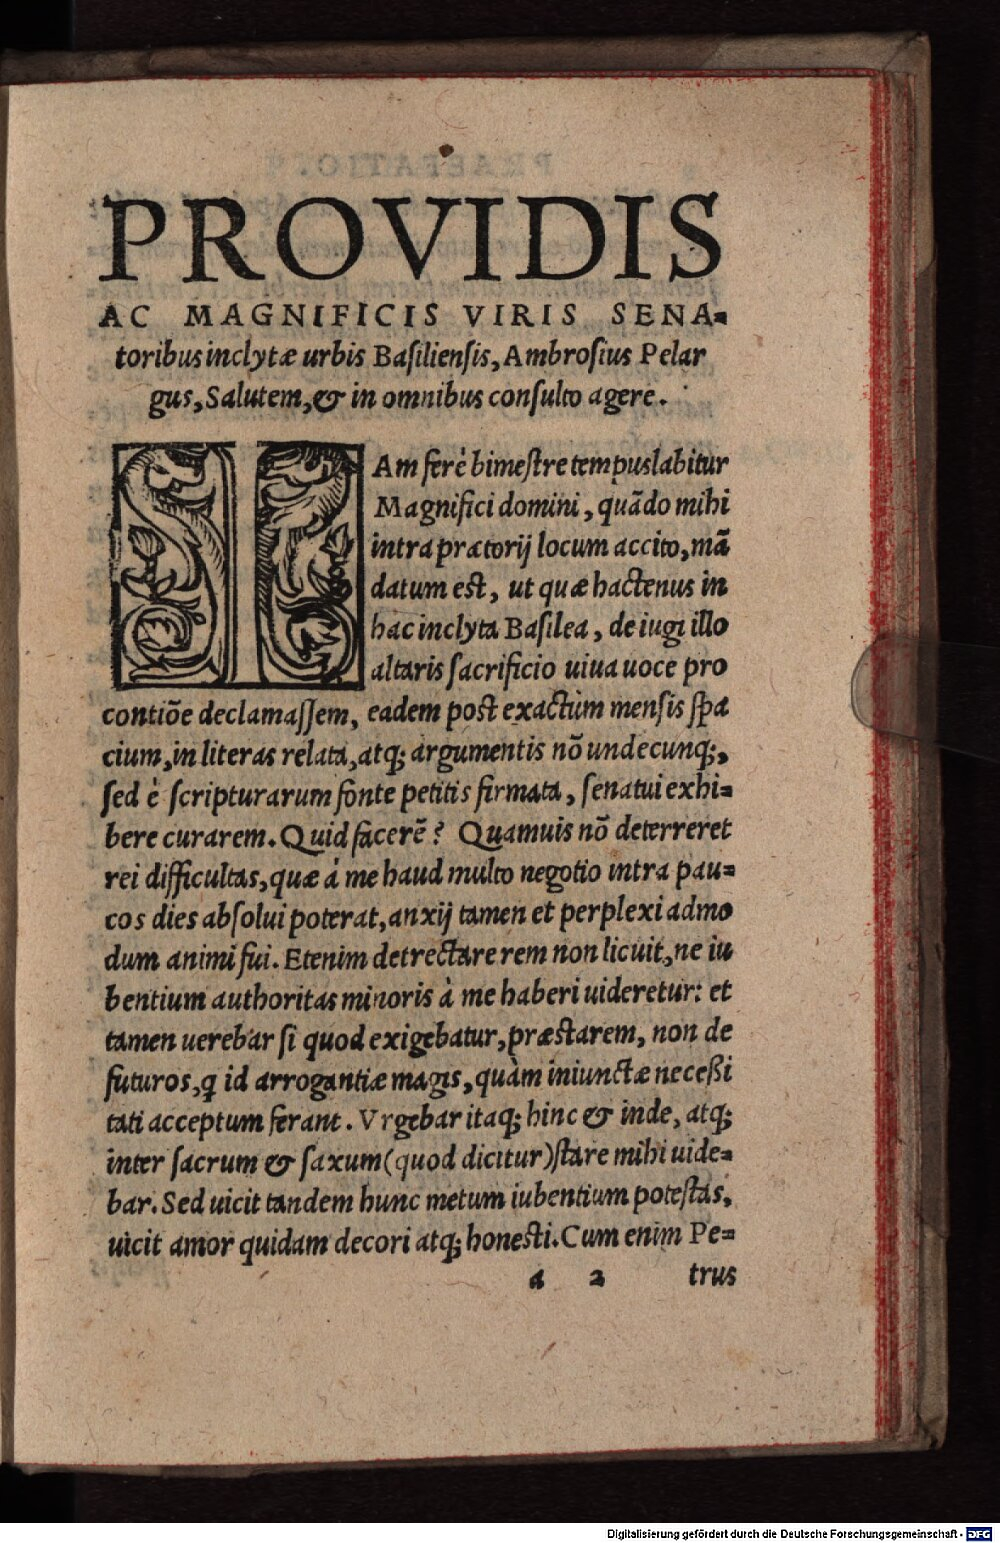 PROVIDIS
AC MAGNIFICIS VIRIS SENA=
toribus inclytæ urbis Basiliensis, Ambrosius Pelar
gus, Salutem, & in omnibus consulto agere.
IAm ferè bimestre tempus labitur
Magnifici domini, quãdo mihi
intra prætorij locum accito, mã
datum est, ut quæ hactenus in
hac inclyta Basilea, de iugi illo
altaris sacrificio uiua uoce pro
contiõe declamassem, eadem post exactũm mensis spa
cium, in literas relata, atq; argumentis nõ undecunq;,
sed è scripturarum fonte petitis firmata, senatui exhi=
bere curarem. Quid facerẽ? Quamuis nõ deterreret
rei difficultas, quæ à me haud multo negotio intra pau=
cos dies absolui poterat, anxij tamen et perplexi admo
dum animi fui. Etenim detrectare rem non licuit, ne iu
bentium authoritas minoris à me haberi uideretur: et
tamen uerebar si quod exigebatur, præstarem, non de
futuros, q̃ id arrogantiæ magis, quàm iniunctæ necessi
tati acceptum ferant. Vrgebar itaq; hinc & inde, atq;
inter sacrum & saxum (quod dicitur) stare mihi uide=
bar. Sed uicit tandem hunc metum iubentium potestas,
uicit amor quidam decori atq; honesti. Cum enim Pe=
a 2 trus
Digitalisierung gefördert durch die Deutsche Forschungsgemeinschaft - DFG